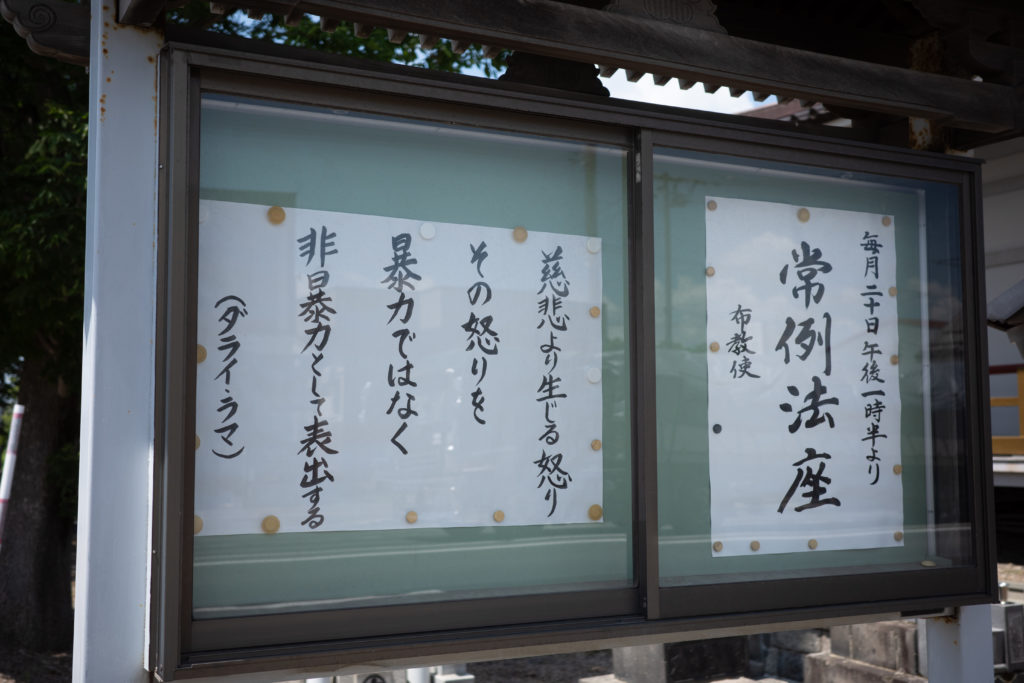 毎月二十日午後一時半より
常例法座
布教使
慈悲より生じる怒り
その怒りを
暴力ではなく
非暴力として表出する
(ダライ・ラマ)